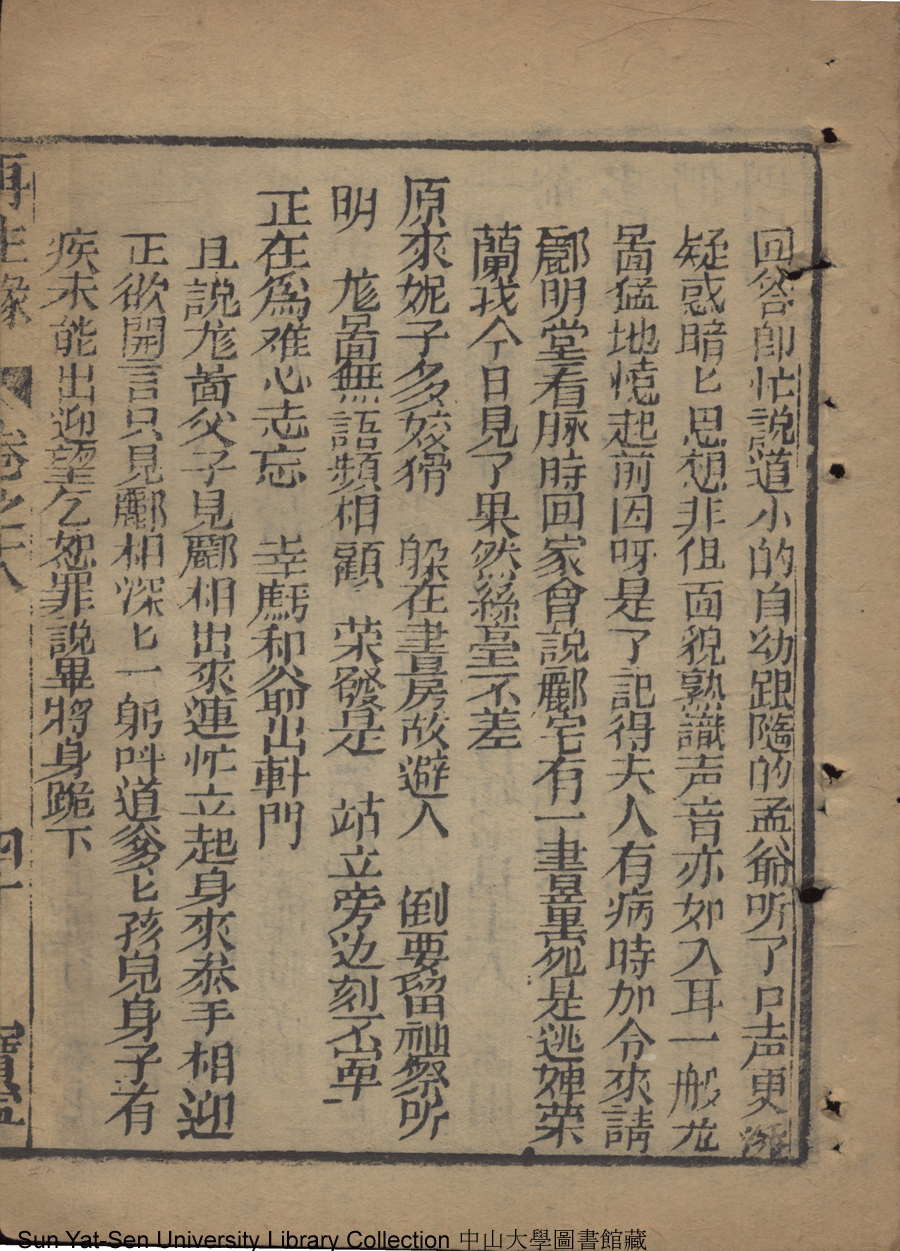 回答即忙説道小的自幼跟隨的孟爺听了口声更
疑惑暗匕思想非但面貌熟識声音亦如入耳一般尨
啚猛地憶起前因呀是了記得夫人有病時加令來請
酈明堂看脉時回家曾説酈宅有一書童宛是逃婢荣
蘭我今日見了果然絲毫不差
原來妮子多姣猾　躲在書房故避人　倒要留神察听
明　尨啚無語頻相顧　荣發是　站立旁边刻不寧
正在爲难心志忘　幸虧和爺出軒門
且説尨啚父子見酈相出來連忙立起身來恭手相迎
正欲開言只見酈相深匕一躬呌道爹匕孩兒身子有
疾未能出迎望乞恕罪説畢將身跪下
再生緣　卷之十八　四十
Sun Yat-Sen University Library Collection 中山大學圖書館藏